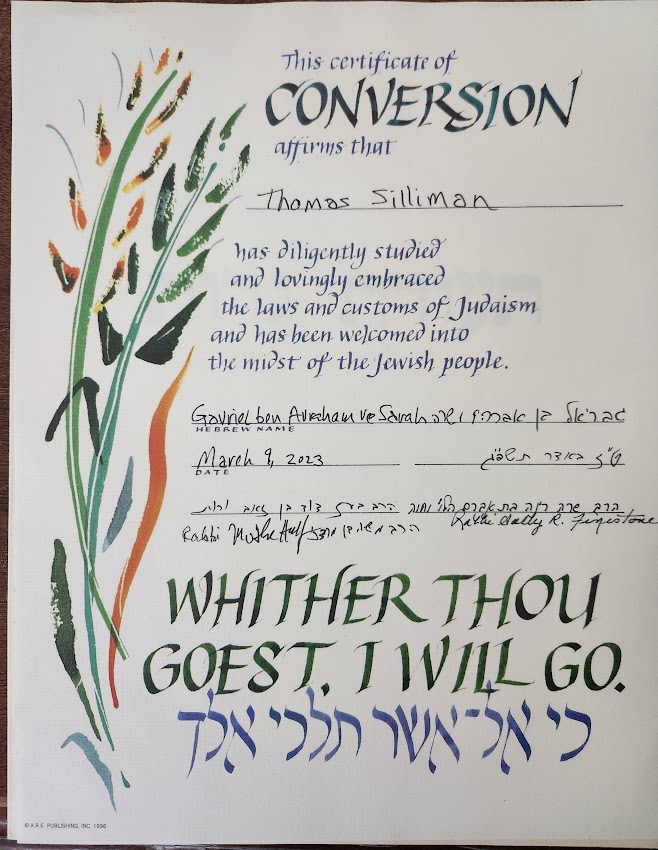 This certificate of
CONVERSION
affirms that
Thomas Silliman
has diligently studied
and lovingly embraced
the laws and customs of Judaism
and has been welcomed into
the midst of the Jewish people.
Gavriel ben Avraham ve Sarah גבריאל בן אברהם ושרה
HEBREW NAME
March 9, 2023 ט"ז באדר תשפ"ג
DATE
הרב שרה רזה בת אברם הלוי וחוה הרב בעז דוד בן זאב ורות
Rabbi הרב משה בן Rabbi Sally R. Finestone
WHITHER THOU
GOEST, I WILL GO.
כי אל־אשר תלכי אלך
© A.R.E. PUBLISHING, INC. 1996